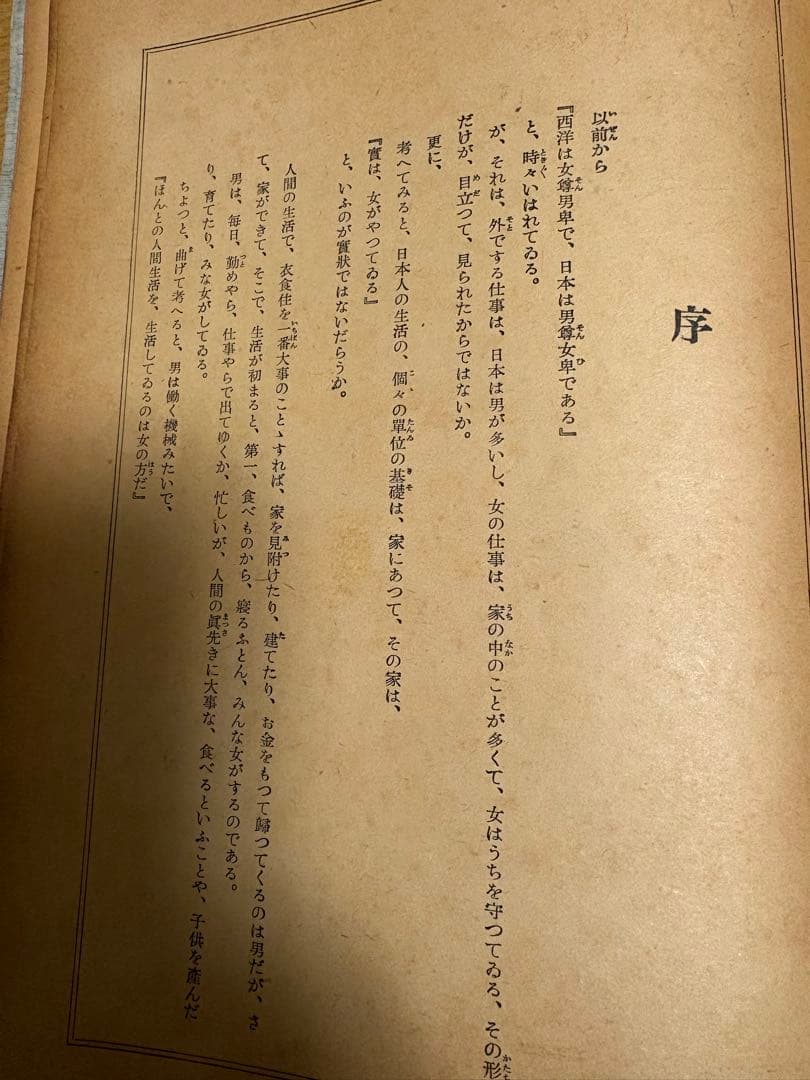 序
以前から
『西洋は女尊男卑で、日本は男尊女卑である』
と、時々いはれてゐる。
が、それは、外でする仕事は、日本は男が多いし、女の仕事は、家の中のことが多くて、女はうちを守つてゐる、その形
だけが、目立つて、見られたからではないか。
更に、
考へてみると、日本人の生活の、個々の單位の基礎は、家にあつて、その家は、
『實は、女がやつてゐる』
と、いふのが實狀ではないだらうか。
人間の生活で、衣食住を一番大事のことゝすれば、家を見附けたり、建てたり、お金をもつて歸つてくるのは男だが、さ
て、家ができて、そこで、生活が初まると、第一、食べものから、寢るふとん、みんな女がするのである。
男は、毎日、勤めやら、仕事やらで出てゆくか、忙しいが、人間の眞先きに大事な、食べるといふことや、子供を產んだ
り、育てたり、みな女がしてゐる。
ちよつと、曲げて考へると、男は働く機械みたいで、
『ほんとの人間生活を、生活してゐるのは女の方だ』